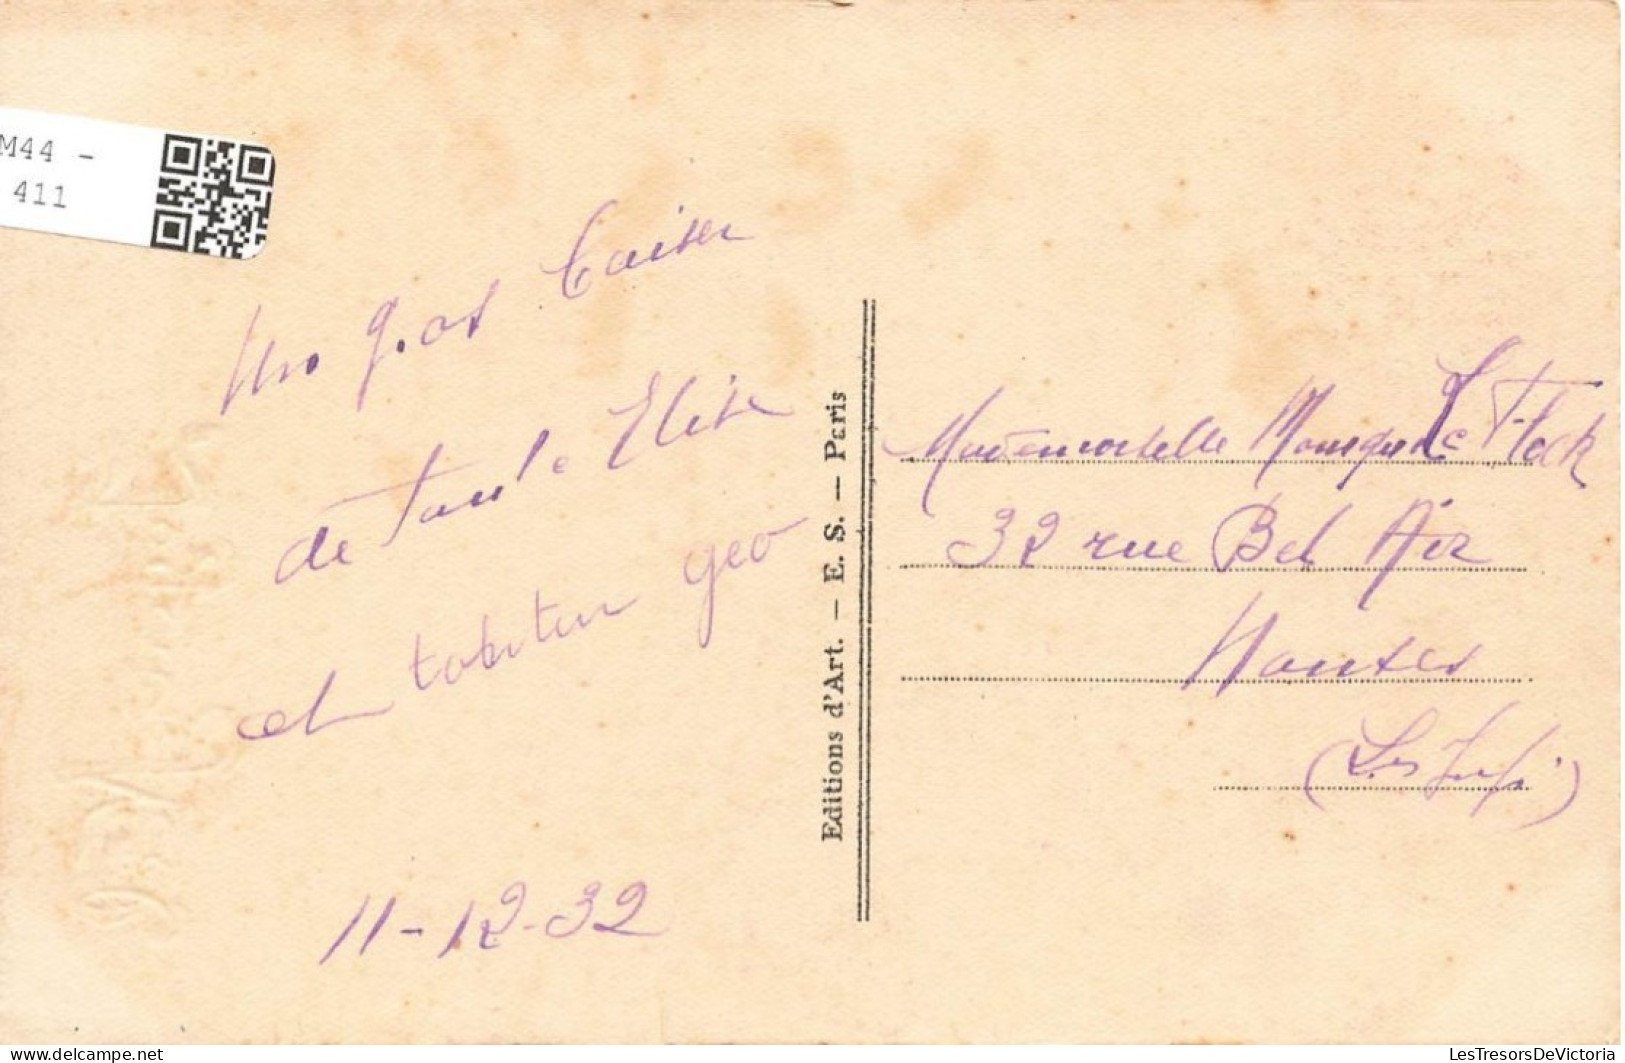 M44 -
411
Un gros baiser
de tante Elise
et tonton géo
11-12-32
Editions d'Art. — E. S. — Paris
Mademoiselle Monique Le Floch
32 rue Bel Air
Nantes
LesTresorsDeVictoria
www.delcampe.net